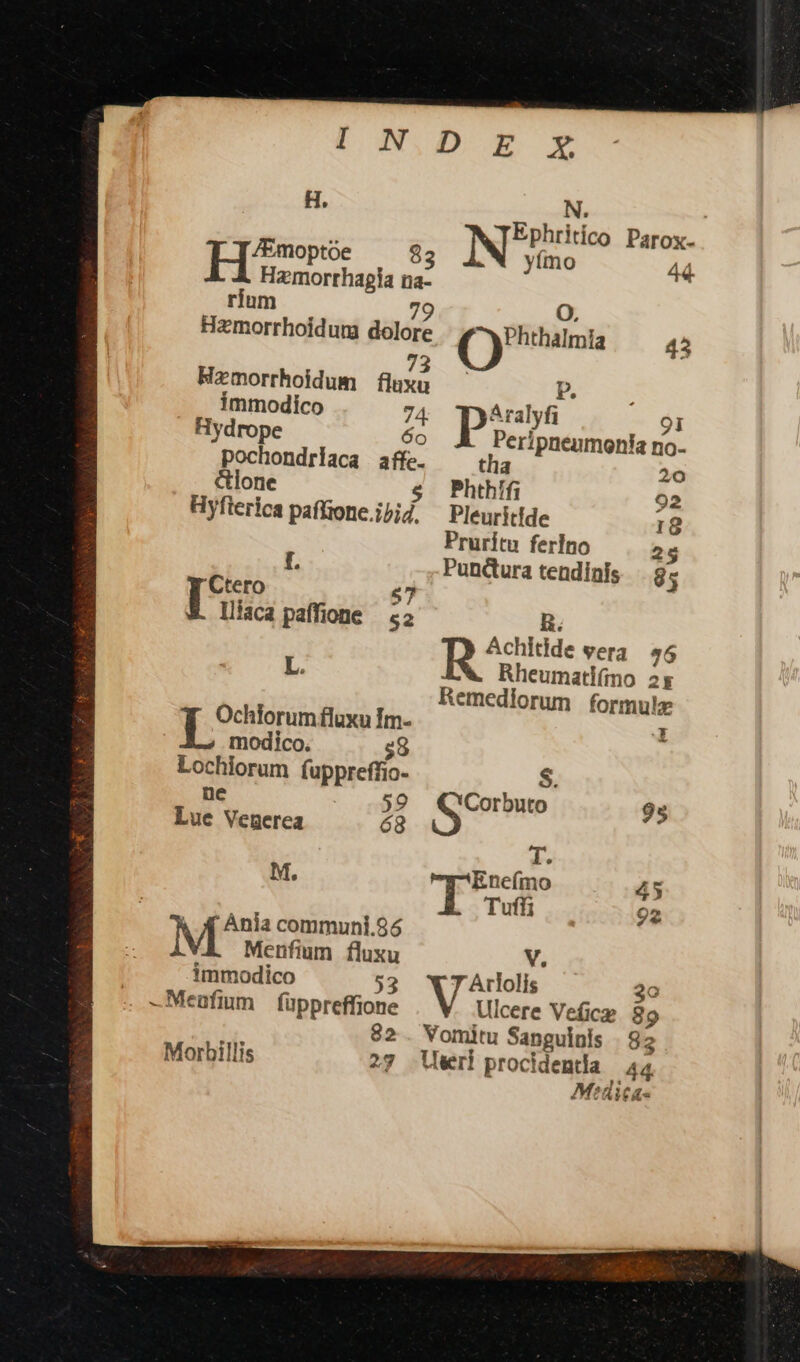 INDEX
H.
HÆmoptöe 83
Hæmorrhagia na-
rium 79
Hæmorrhoidum dolore
73
Hæmorrhoidum fluxu
immodico 74
Hydrope 60
pochondriaca affe-
ctione 5
Hyſterica paſſione.ibid.
I.
ICtero 57
Iliaca paſſione 52
L.
LOchiorum fluxu im-
modico. 58
Lochiorum ſuppreſſio-
ne 59
Lue Venerea 68
M.
MAnia communi.86
Menſium fluxu
immodico 53
Menſium ſuppreſſione
82
Morbillis 27
N.
NEphritico Parox-
yſmo 44
O.
OPhthalmia 43
P.
PAralyſi 91
Peripneumonia no-
tha 20
Phthiſi 92
Pleuritide 18
Pruritu ferino 25
Punctura tendinis 85
R.
RAchitide vera 96
Rheumatiſmo 21
Remediorum formulæ
1
S.
SCorbuto 95
T.
TEneſmo 45
Tuſſi 92
V.
VAriolis 30
Ulcere Veſicæ 89
Vomitu Sanguinis 82
Uteri procidentia 44
Medica-